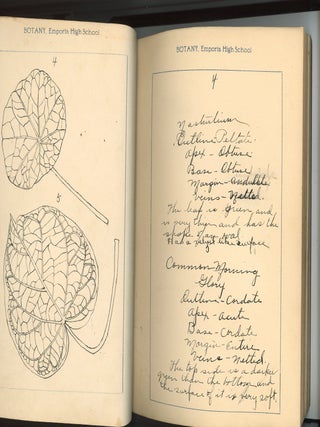 BOTANY, Emporia High School
4
5
BOTANY, Emporia High School
4
Nasturtium
Outline Peltate
Apex - Obtuse
Base - Obtuse
Margin - Undulate
Veins - Netted.
The leaf is green and
is very thin and has the
Had a velvet like surface
Common Morning
Glory
Outline - Cordate
Apex - Acute
Base - Cordate
Margin - Entire
Veins - Netted.
The top side is a darker
green than the bottom and
the surface of it is very soft.